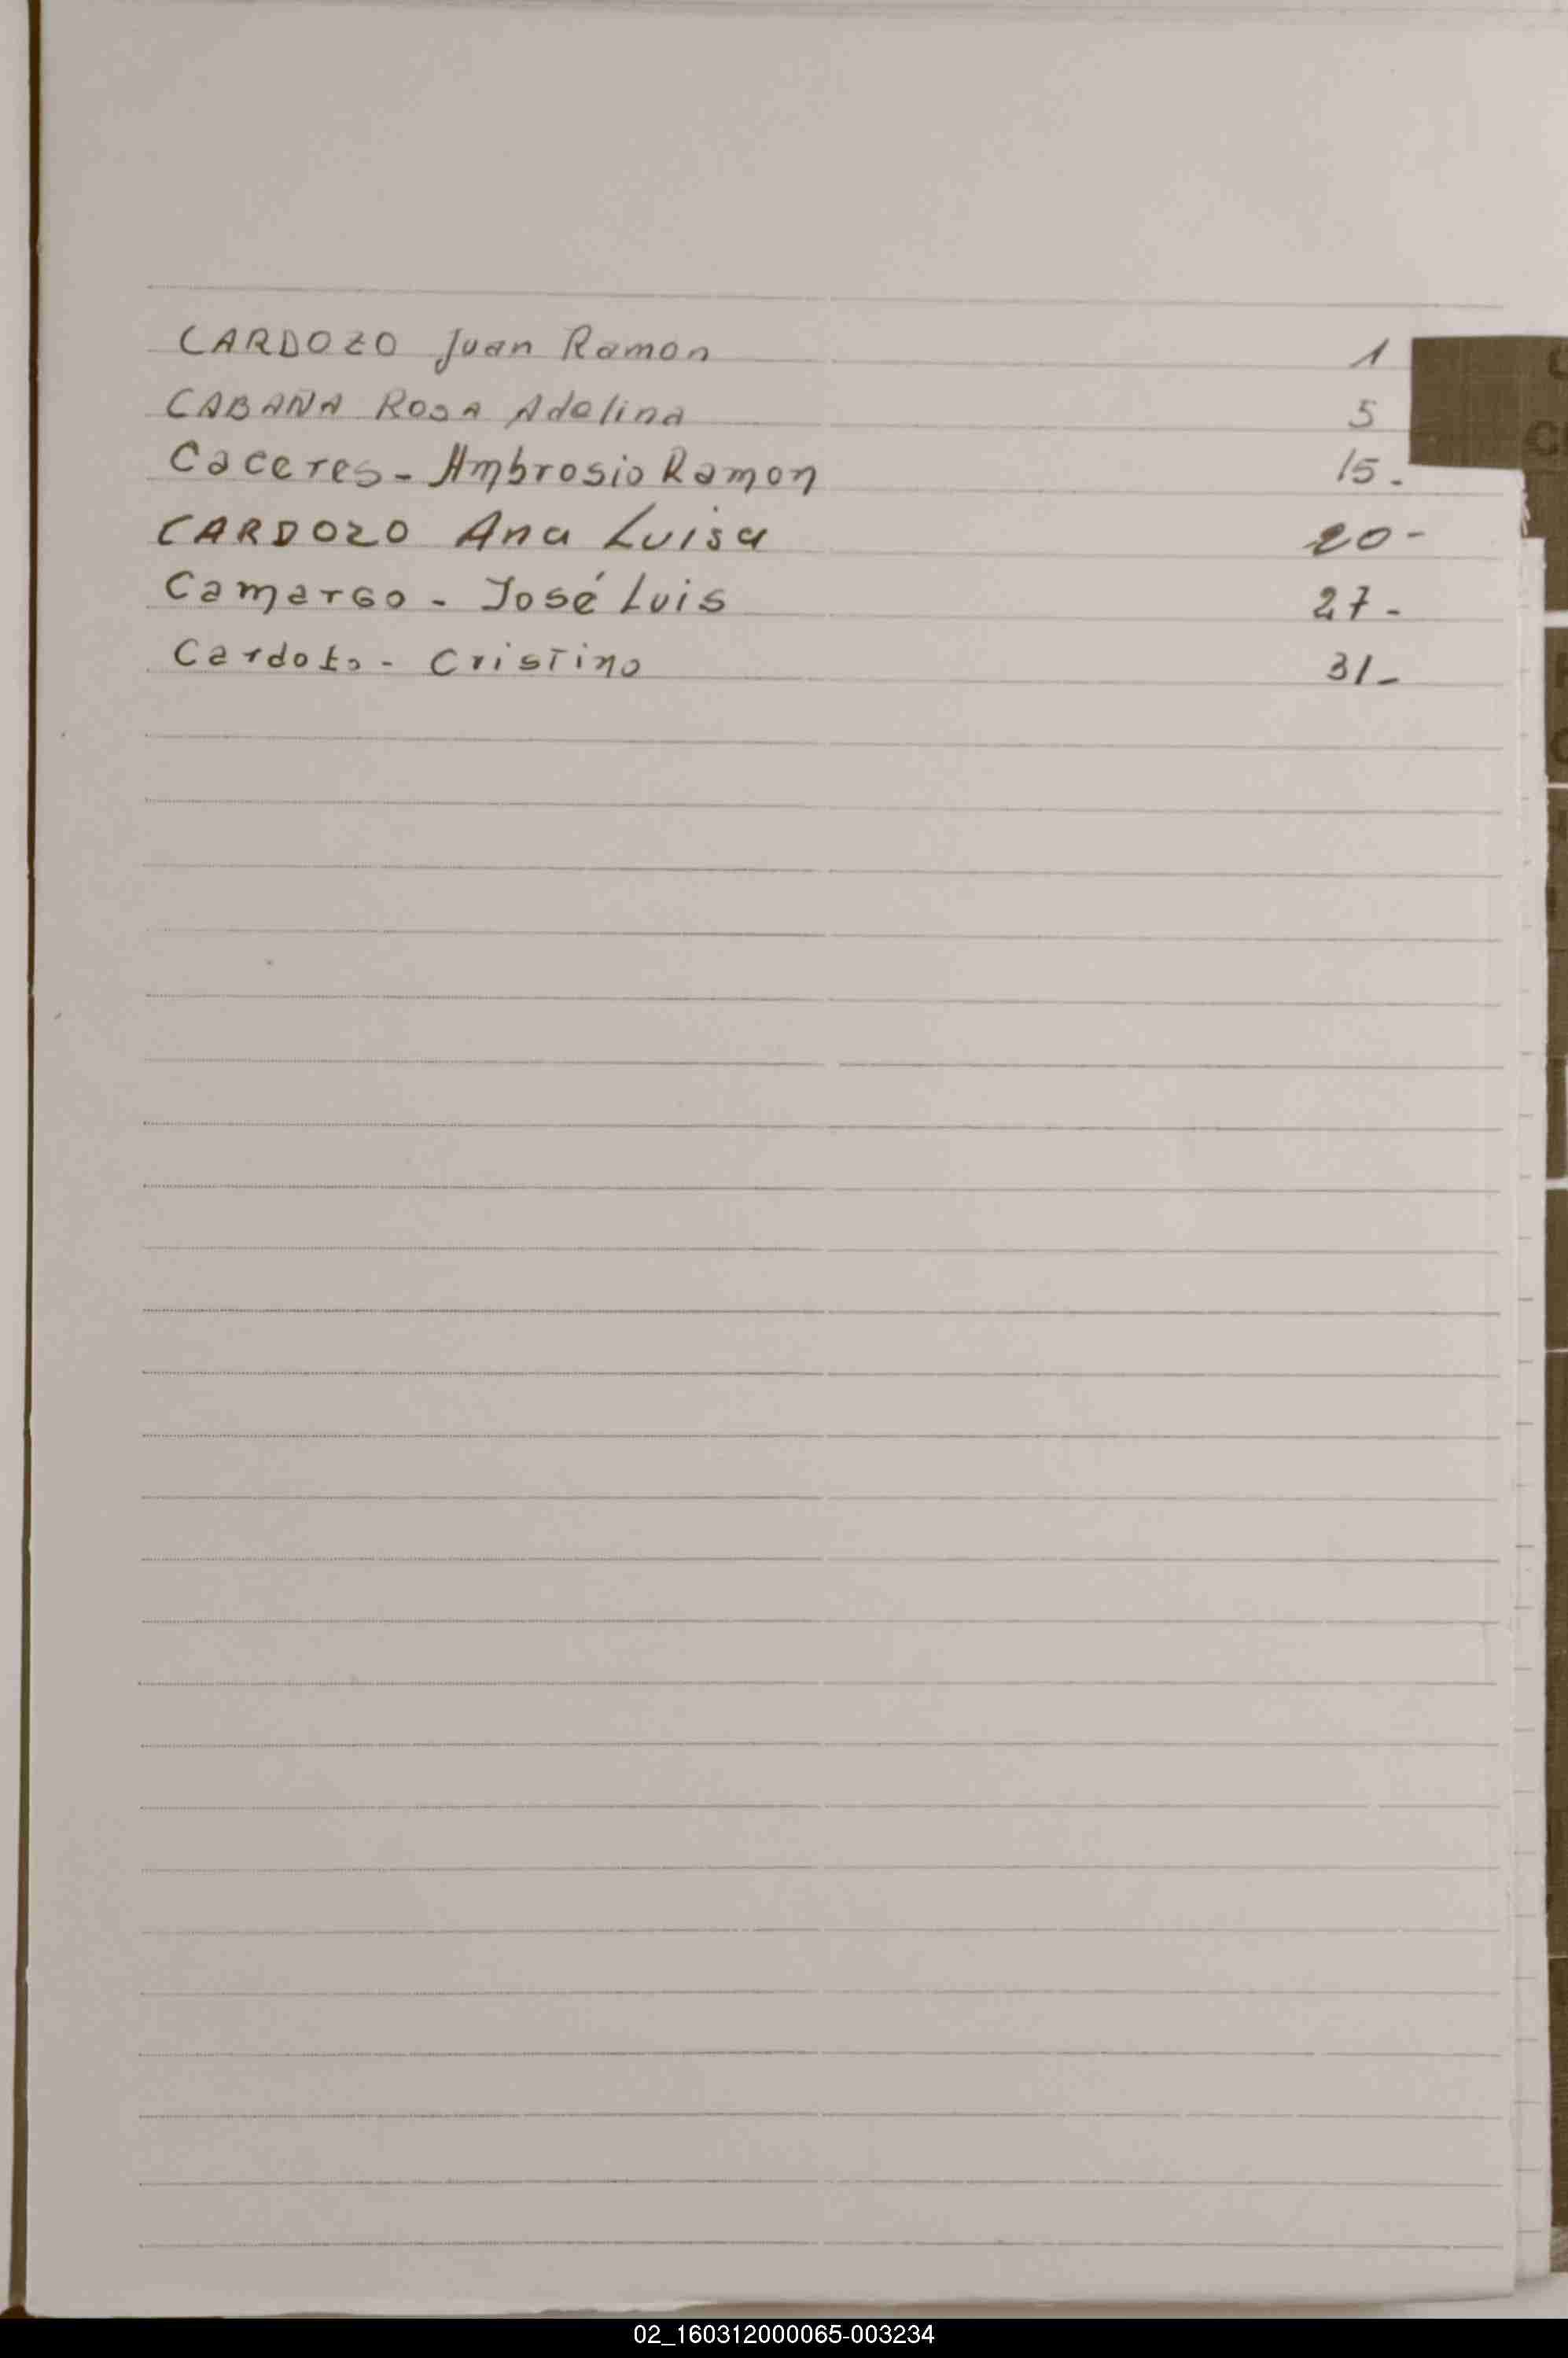 CARDOZO Juan Ramon 1
CABAÑA ROSA Adelina 5
Caceres - Ambrosio Ramon 15 -
CARDOZO Ana Luisa 20 -
Camargo - José Luis 27 -
Cardozo - Cristino 31 -
02_160312000065-003234